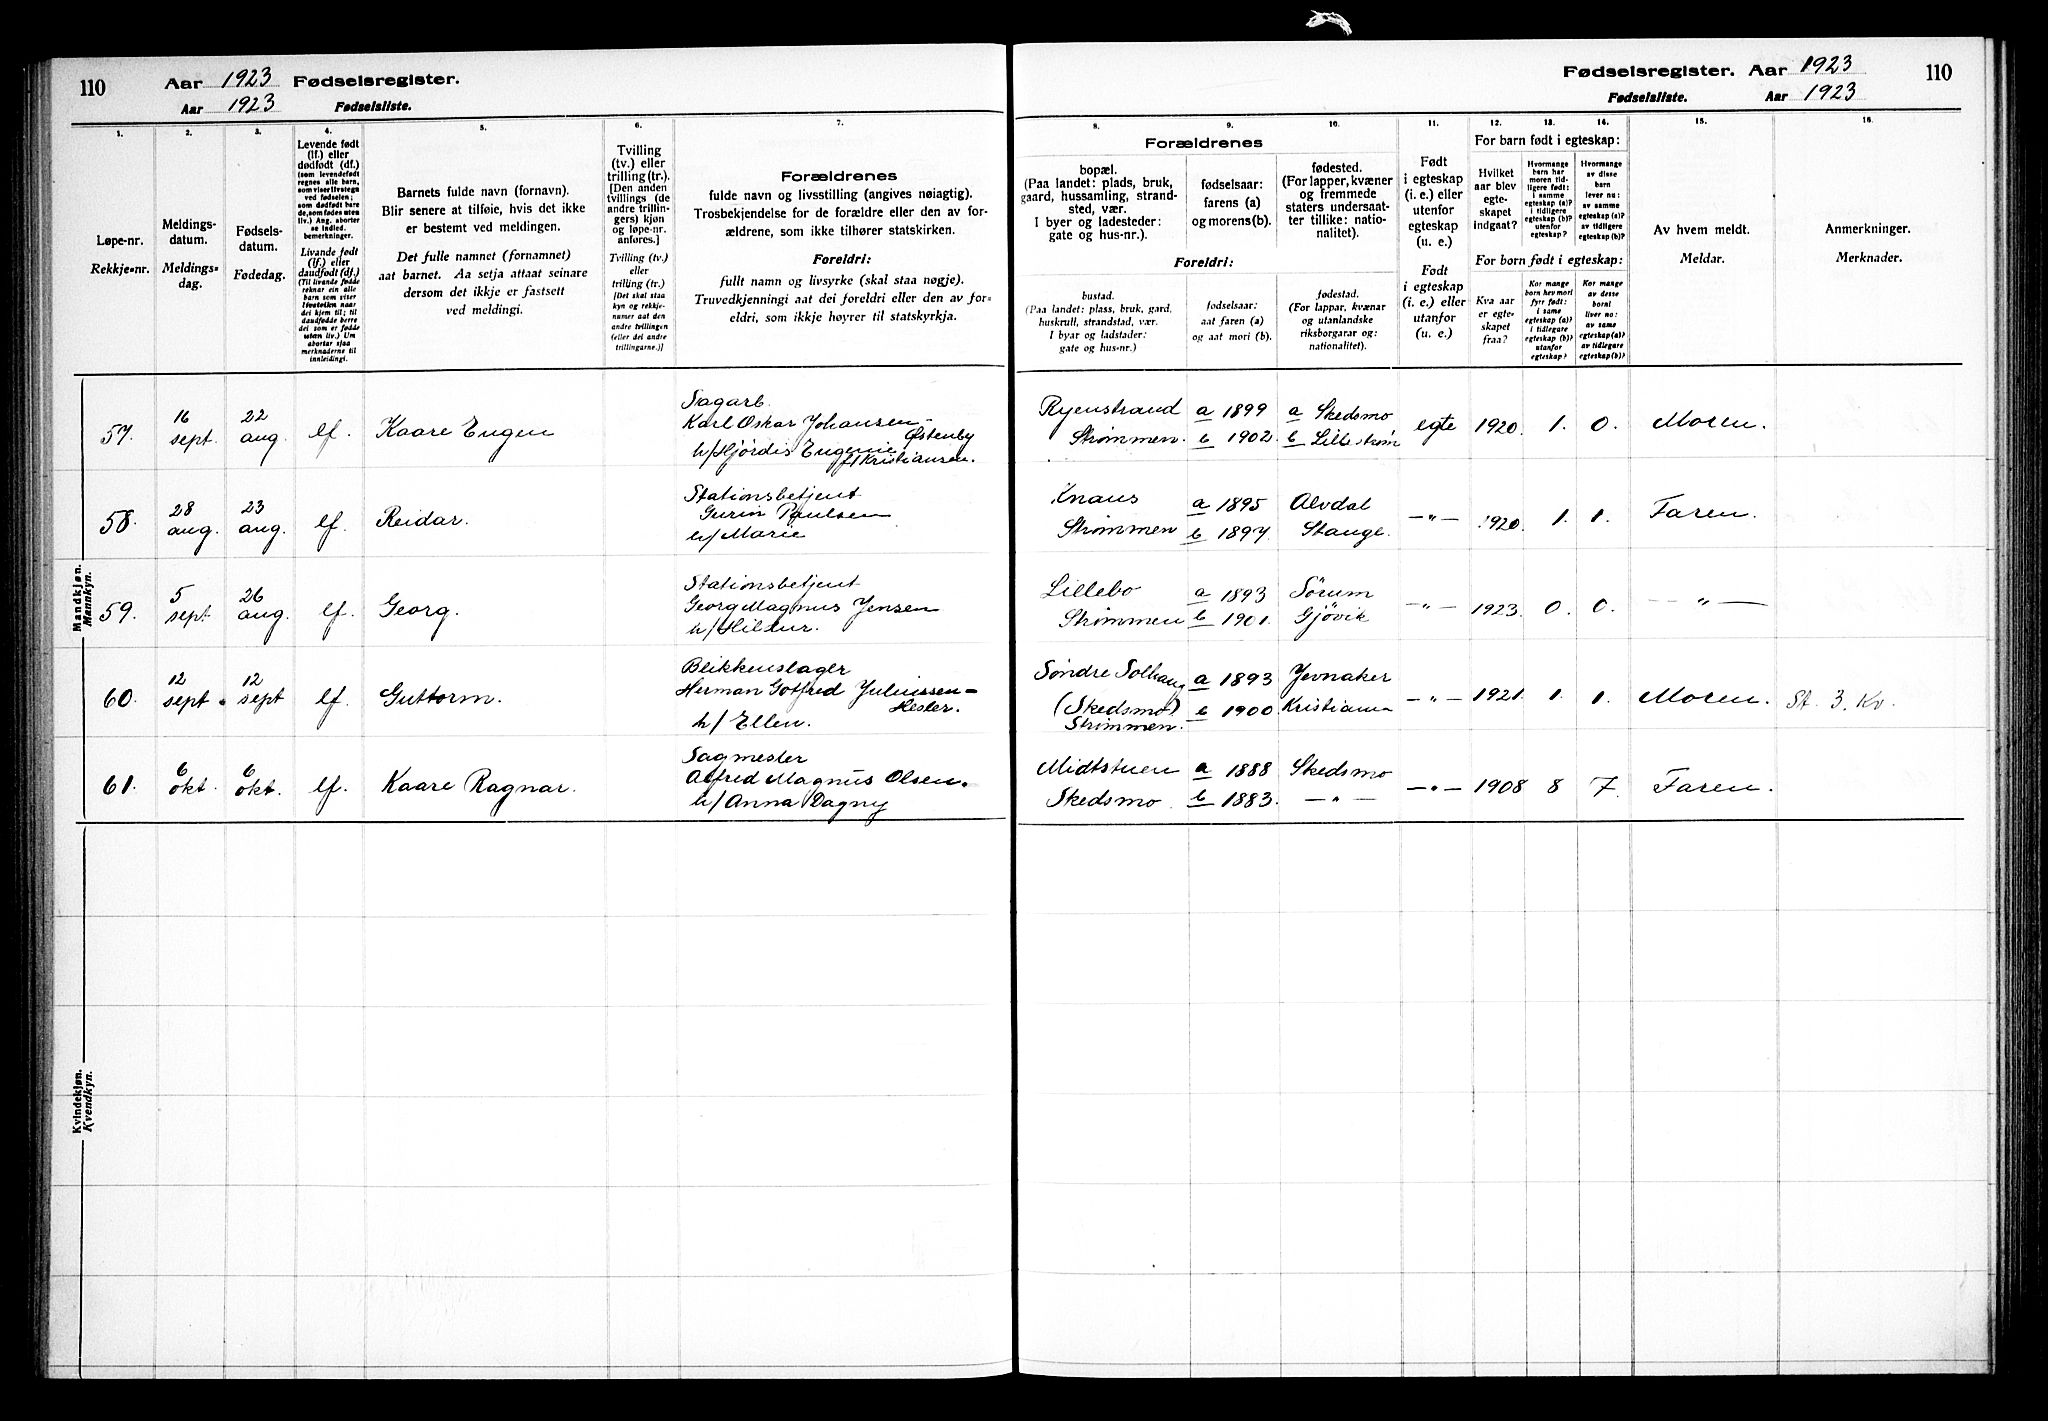 110 Aar 1923 Fødselsregister.
Aar 1923 Fødselsliste.
1.
Løpe-nr.
Rekkje-nr.
2.
Meldings-
datum.
Meldings-
dag.
3.
Fødsels-
datum.
Fødedag.
4.
Levende født
(lf.) eller
dødfødt (df.)
(som levendefødt
regnes alle barn,
som viser livstegn
ved fødselen;
som dødfødt bare
de, som fødes uten
liv.) Ang. aborter
se indled.
bemerkninger.
Livande fødd
(lf.) eller
daudfødt (df.)
(Til livande fødde
reknar ein alle
born som viser
livsteikn naar
dei kjem til; til
daudfødde berre
dei som er fødde
utan liv.) Um
abortar sjaa
merknaderne til
innleidingi.
5.
Barnets fulde navn (fornavn).
Blir senere at tilføie, hvis det ikke
er bestemt ved meldingen.
Det fulle namnet (fornamnet)
aat barnet. Aa setja attaat seinare
dersom det ikkje er fastsett
ved meldingi.
6.
Tvilling
(tv.) eller
trilling (tr.).
[Den anden
tvillings (de
andre trillin-
gers) kjøn
og løpe-nr.
anføres.]
Tvilling (tv.)
eller
trilling (tr.)
[Det skal staa
kyn og rekkje-
numer aat den
andre tvillingen
(eller dei andre
trillingarne.)]
7.
Forældrenes
fulde navn og livsstilling (angives nøiagtig).
Trosbekjendelse for de forældre eller den av for-
ældrene, som ikke tilhører statskirken.
Foreldri:
fullt namn og livsyrke (skal staa nøgje).
Truvedkjenningi aat dei foreldri eller den av for-
eldri, som ikkje høyrer til statskyrkja.
Mandkjøn.
Mannkyn.
57. 16 sept. 22 aug. lf. Kaare Eugen
Sagarb.
Karl Oskar Johansen-
Østenby
h/Hjørdis Eugenie
f/Kristiansen.
58. 28 aug. 23 aug. lf. Reidar.
Stationsbetjent
Paulsen
h/Marie
59. 5 sept 26 aug. lf. Georg.
Stationsbetjent
Georg Magnus Jensen
h/Hildur.
60. 12 sept. 12 sept lf. Guttorm.
Blikkenslager
Herman Gotfred Juliussen-
Hester.
h/Ellen.
61. 6 okt. 6 okt. lf. Kaare Ragnar.
Sagmester
Alfred Magnus Olsen.
h/Anna Dagny
Kvindekjøn.
Kvendkyn.
Fødselsregister. Aar 1923 110
Fødselsliste. Aar 1923
Forældrenes
8.
bopæl.
(Paa landet: plads, bruk,
gaard, hussamling, strand-
sted, vær.
I byer og ladesteder:
gate og hus-nr.).
9.
fødselsaar:
farens (a)
og morens(b).
10.
fødested.
(For lapper, kvæner
og fremmede
staters undersaat-
ter tillike: natio-
nalitet).
Foreldri:
bustad.
(Paa landet: plass, bruk, gard,
huskrull, strandstad, vær.
I byar og ladstader:
gate og hus-nr.)
fødselsaar:
aat faren (a)
og aat mori (b).
fødestad.
(For lappar, kvænar
og utanlandske
riksborgarar og:
nationalitet).
11.
Født
i egteskap
(i. e.) eller
utenfor
egteskap
(u. e.).
Født
i egteskap
(i. e.) eller
utanfor
(u. e.).
For barn født i egteskap:
12.
Hvilket
aar blev
egte-
skapet
indgaat?
13.
Hvormange
barn har
moren tid-
ligere født:
i samme
egteskap (a)?
i tidligere
egteskap (b)?
utenfor
egteskap?
14.
Hvormange
av disse
barn
lever nu:
av samme
egteskap (a)?
av tidligere
egteskap (b)?
For born født i egteskap:
Kva aar
er egte-
skapet
fraa?
Kor mange
born hev mori
fyrr født:
i same
egteskap (a)?
i tidlegare
egteskap (b)?
utanfor
egteskap?
Kor mange
av desse
borni
liver no:
av same
egteskap (a)?
av tidlegare
egteskap (b)?
15.
Av hvem meldt.
Meldar.
16.
Anmerkninger.
Merknader.
Ryenstrand a 1899 a Skedsmo egte 1920. 1. 0. Moren.
Strømmen. b 1902. b Lillestrøm
Knaus a 1895 Alvdal —"— 1920. 1. 1. Faren.
Strømmen b 1897. Stange.
Lillebo a 1893 Sørum —"— 1923. 0. 0. —"—
Strømmen b 1901. Gjøvik
Søndre Solhaug a 1893 Jevnaker —"— 1921. 1. 1. Moren. St. 3. Kv.
(Skedsmo) b 1900. Kristiania
Strømmen.
Midtstuen a 1888 Skedsmo —"— 1908 8 7. Faren.
Skedsmo. b 1883. —"—